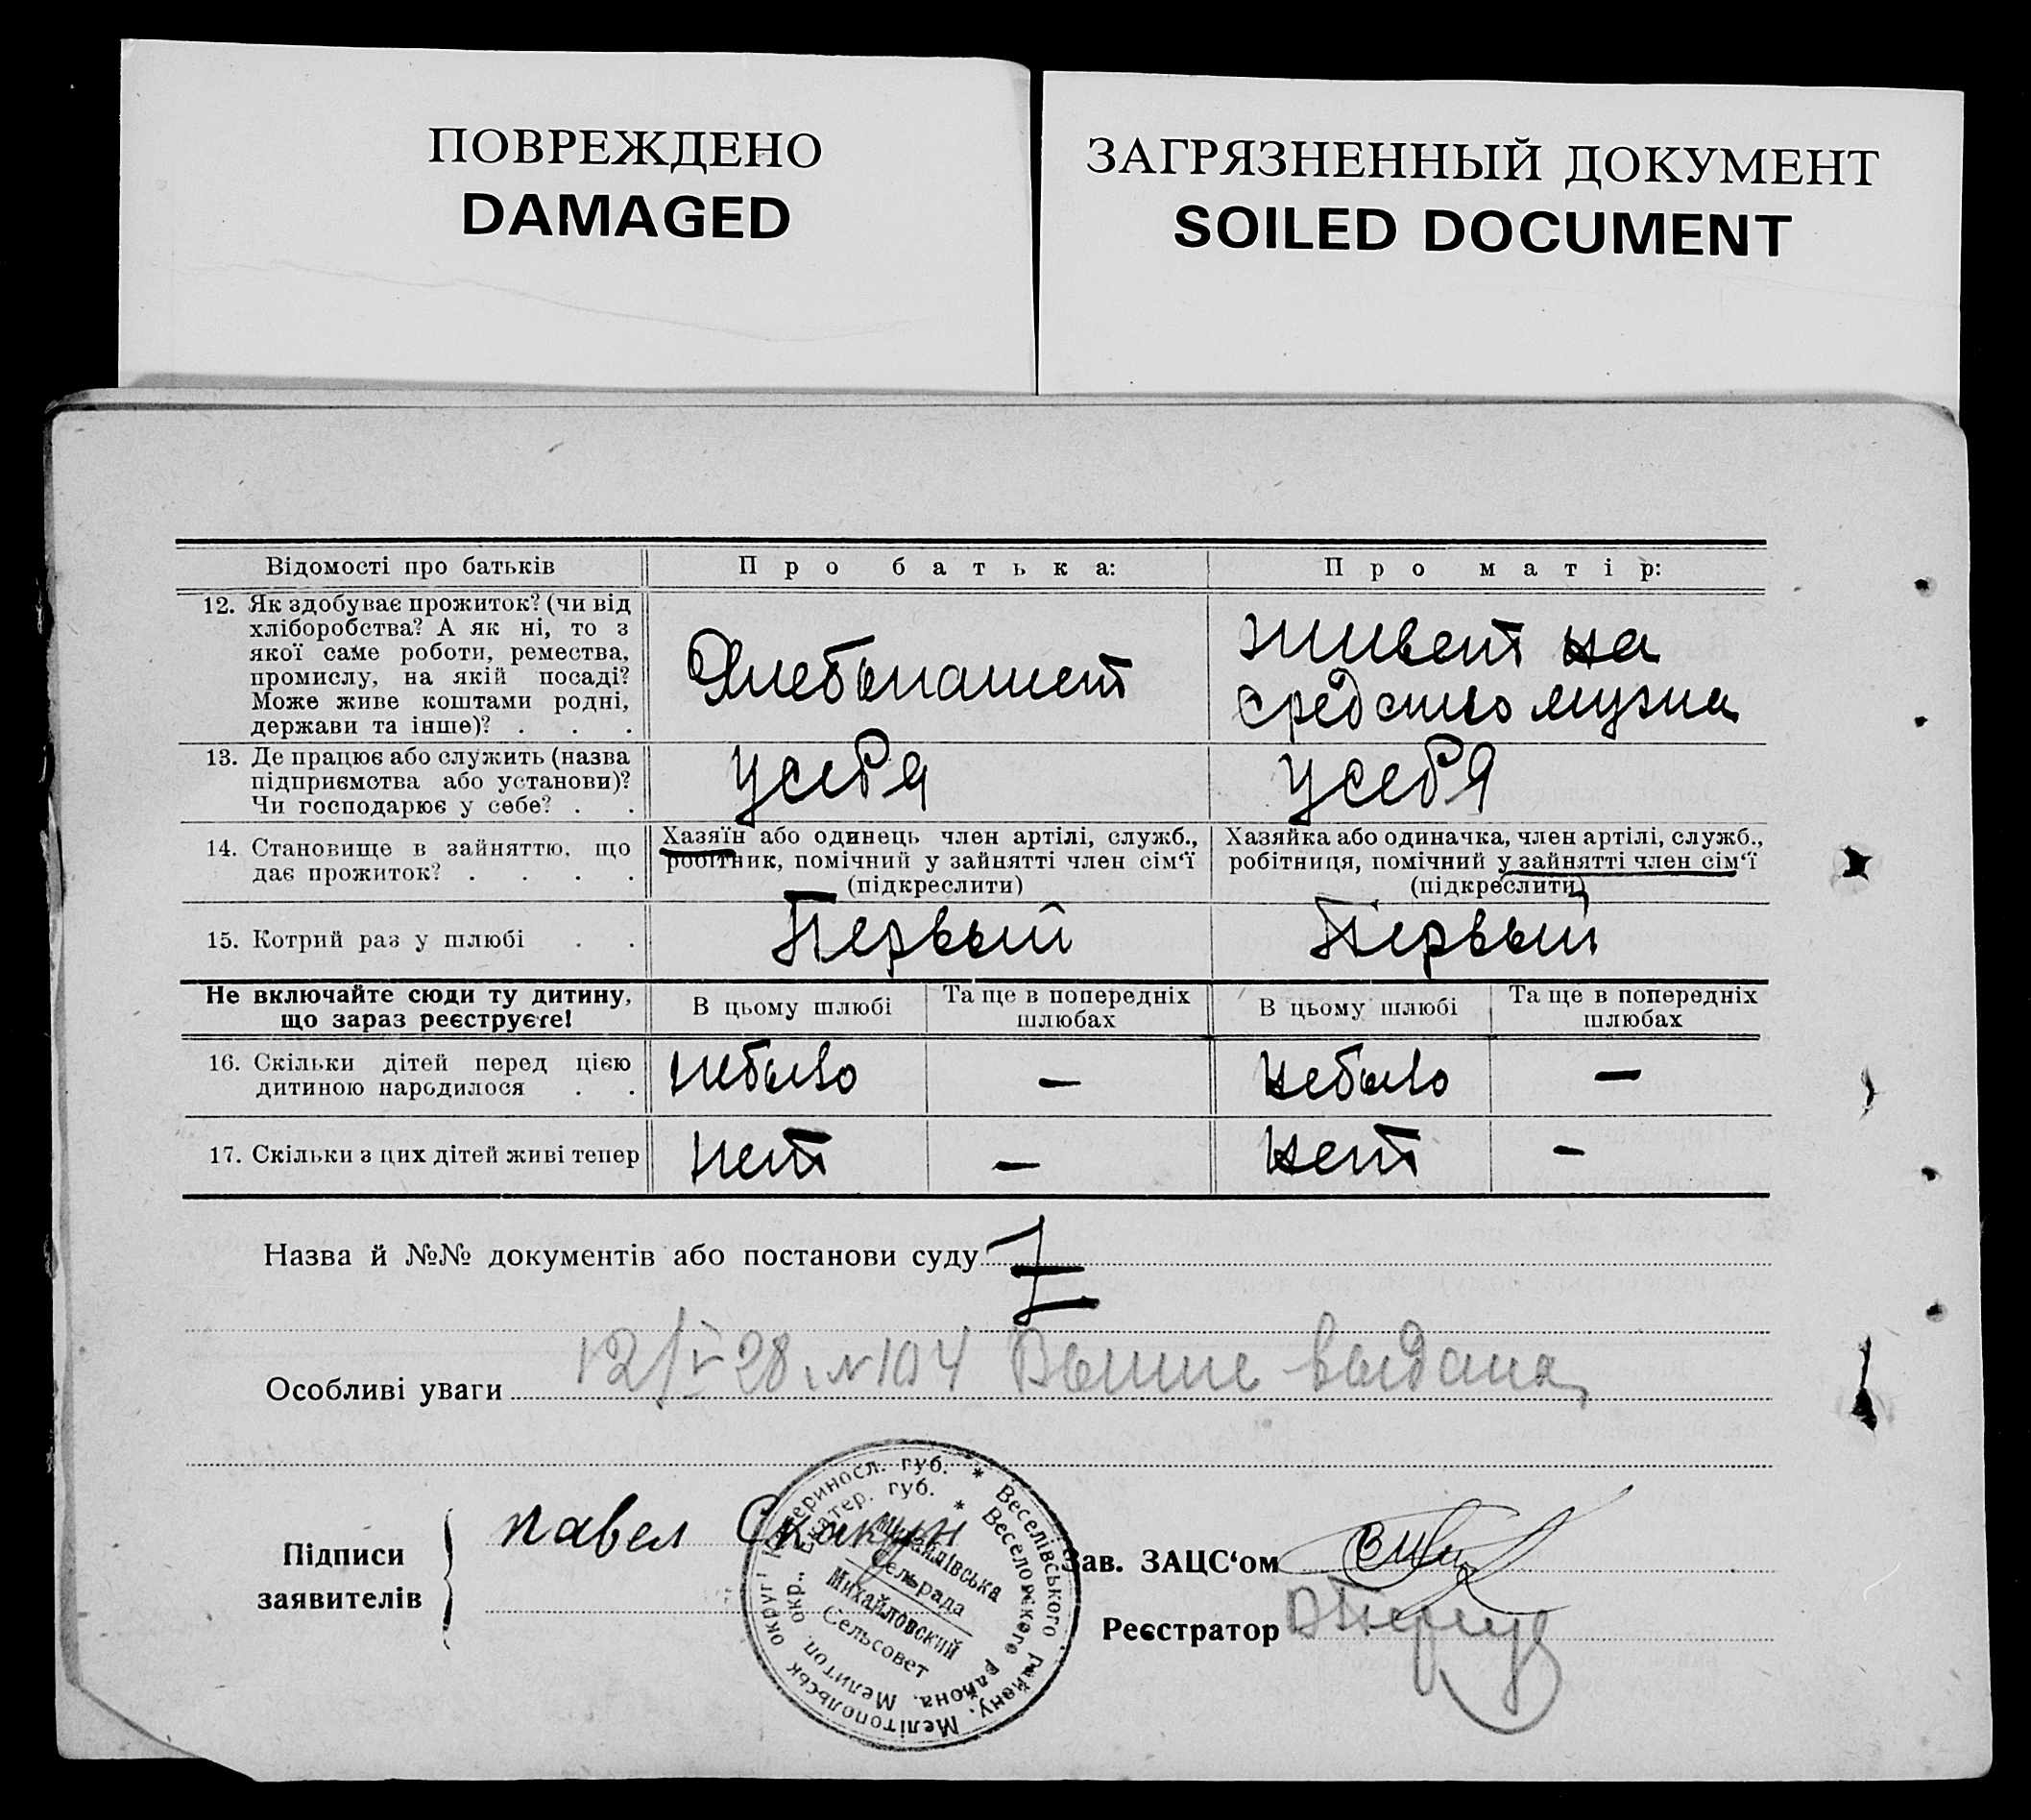 ПОВРЕЖДЕНО
DAMAGED
ЗАГРЯЗНЕННЫЙ ДОКУМЕНТ
SOILED DOCUMENT
Відомості про батьків
Про батька:
Про матір:
12. Як здобуває прожиток? (чи від
хліборобства? А як ні, то з
якої саме роботи, ремества,
промислу, на якій посаді?
Може живе коштами родні,
держави та інше)? . . .
Хлебопашет
живет на
средство мужа
13. Де працює або служить (назва
підприємства або установи)?
Чи господарює у себе? . .
усебя
усебя
14. Становище в зайняттю, що
дає прожиток? . . . .
Хазяїн або одинець член артілі, служб.,
робітник, помічний у зайнятті член сім‘ї
(підкреслити)
Хазяйка або одиначка, член артілі, служб.,
робітниця, помічний у зайнятті член сім‘ї
(підкреслити)
15. Котрий раз у шлюбі . .
Первый
Первый
Не включайте сюди ту дитину,
що зараз реєструєте!
В цьому шлюбі
Та ще в попередніх
шлюбах
В цьому шлюбі
Та ще в попередніх
шлюбах
16. Скільки дітей перед цією
дитиною народилося . .
небыло
—
небыло
—
17. Скільки з цих дітей живі тепер
нет
—
нет
-
Назва й №№ документів або постанови суду
12/V 28. №104 выдана
Особливі уваги
Підписи
заявителів
павел Скакун
Катериносл. губ. * Веселівського району, Мелітопольськ округі
Екатер. губ. * Веселовского района, Мелитоп. окр.,
Михайлівська
Сельрада
Михайловский
Сельсовет
Зав. ЗАЦС‘ом
Реєстратор